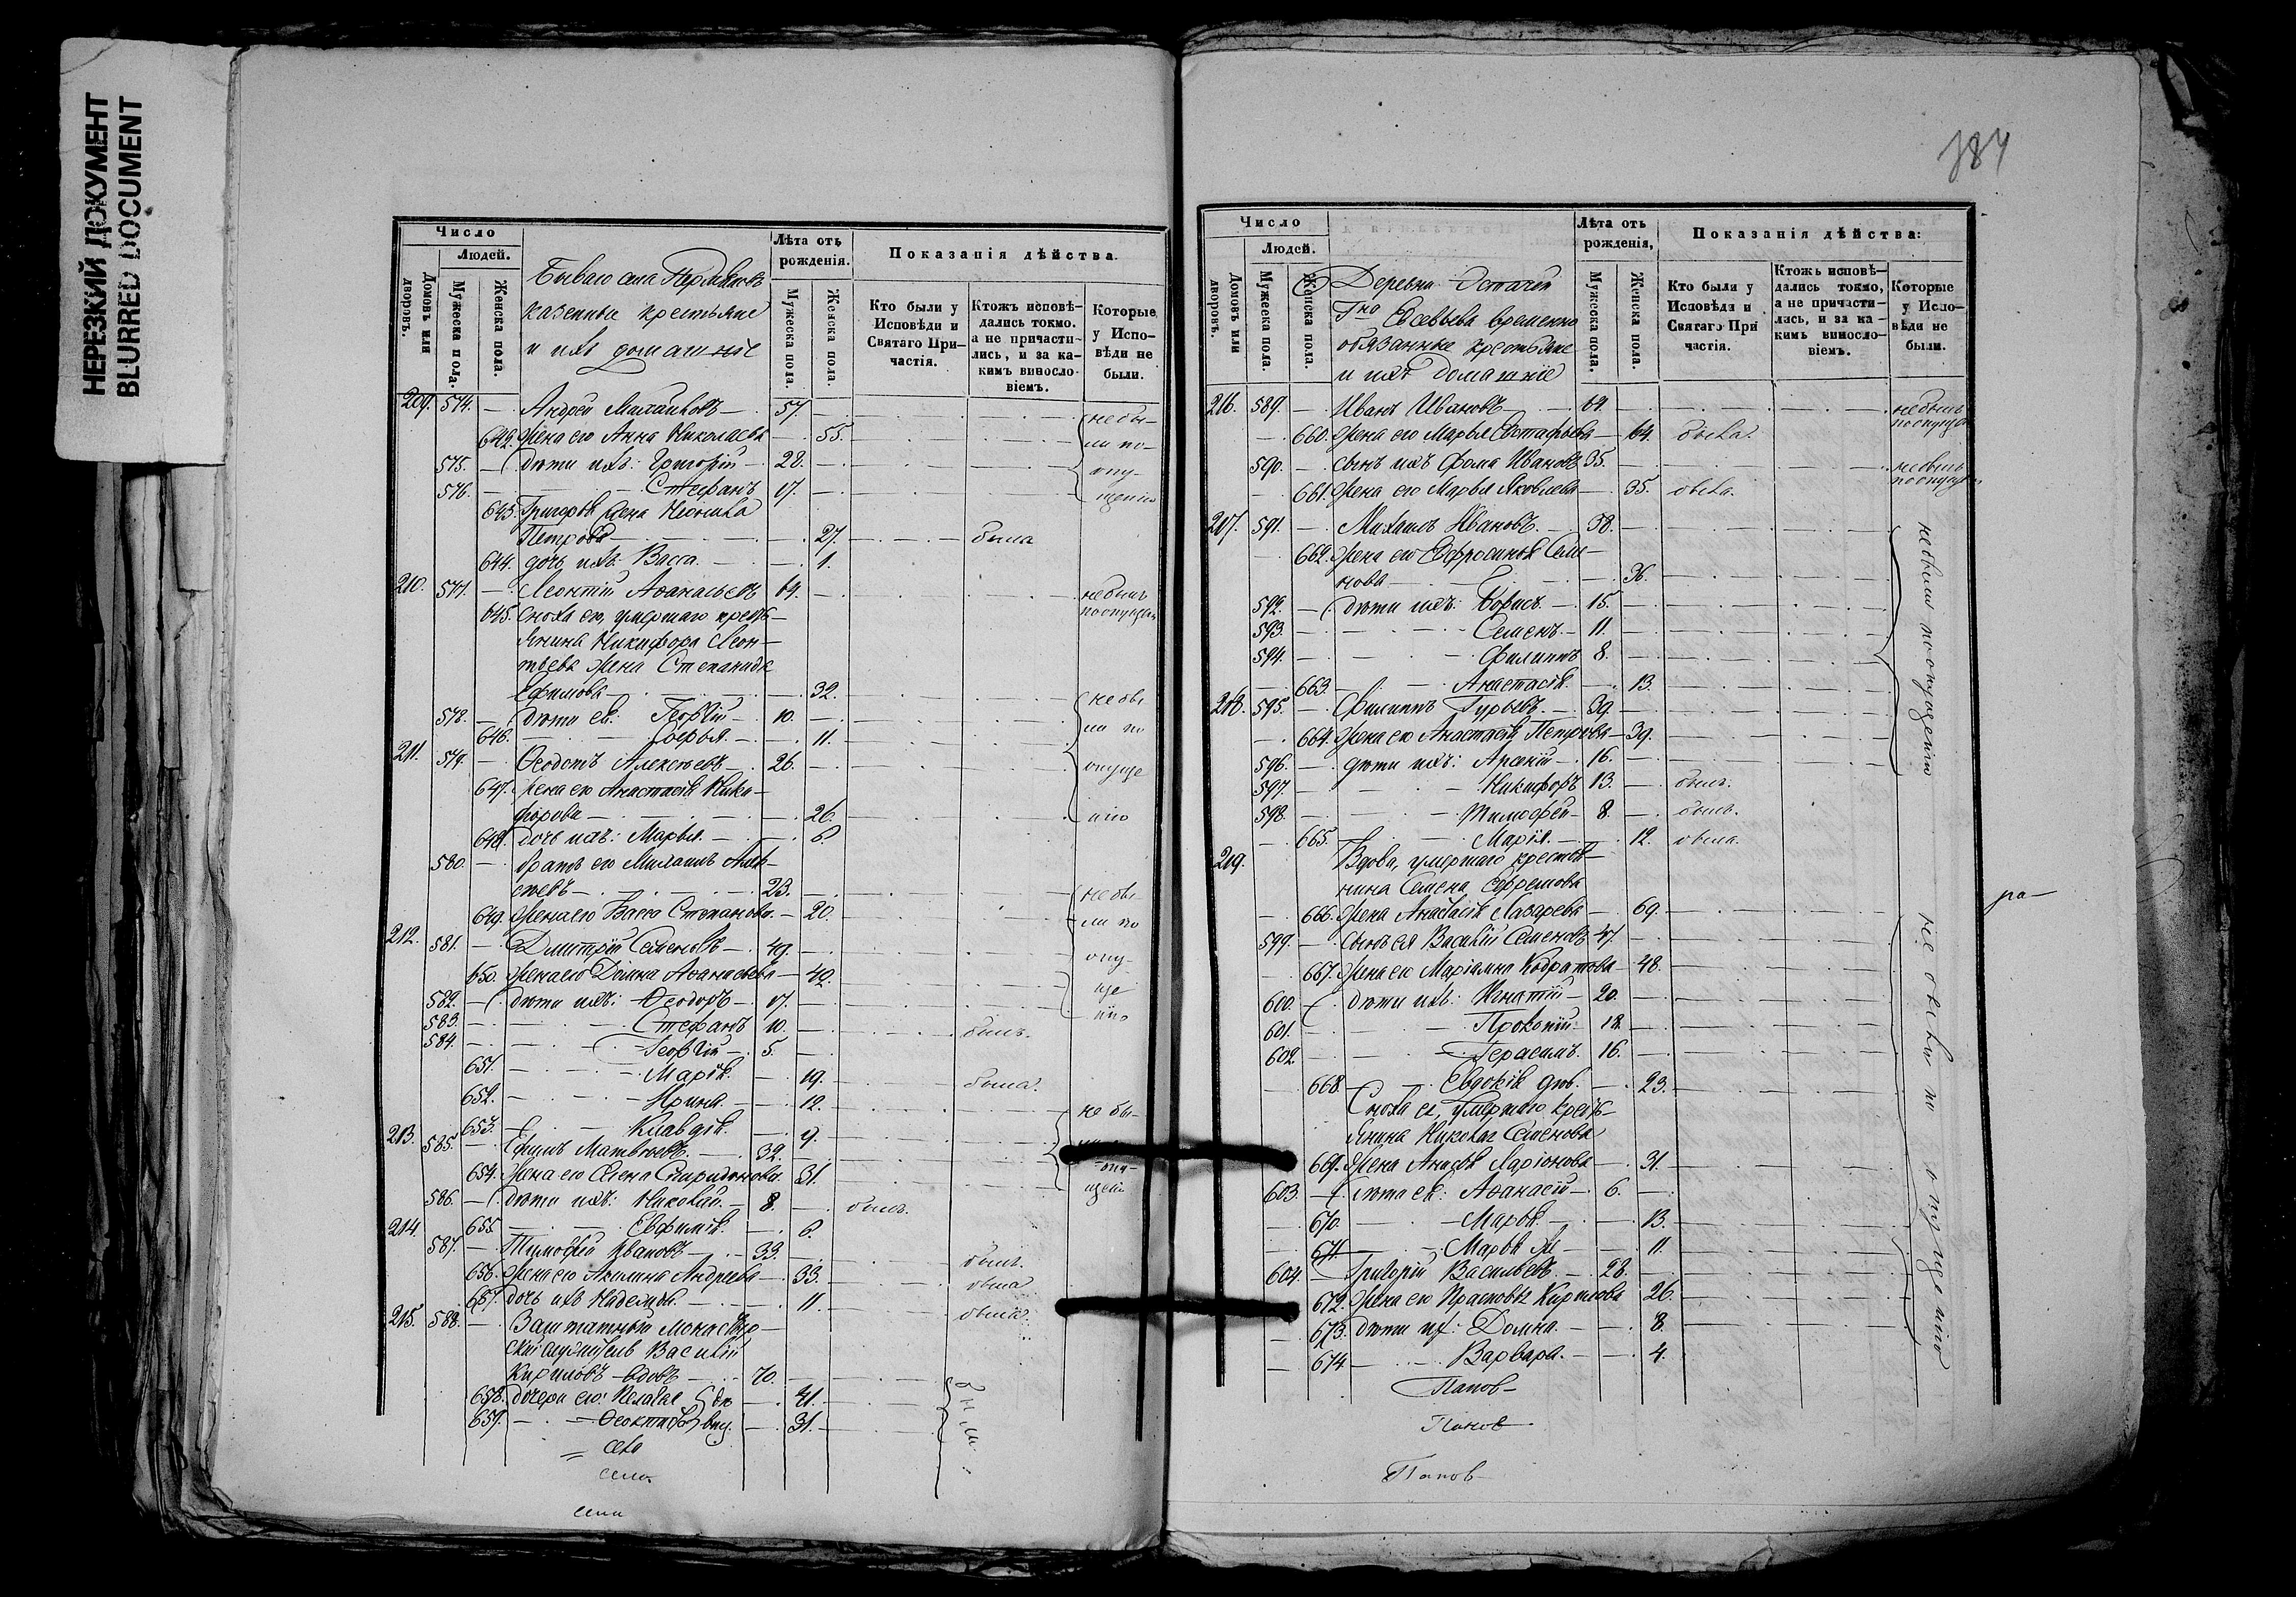 НЕРЕЗКИЙ ДОКУМЕНТ
BLURRED DOCUMENT
Число
Людей.
Домовъ или дворовъ.
Мужеска пола.
Женска пола.
Бываго села
казенные крестьяне
и ихъ домашніе
Лѣта отъ рожденія.
Мужеска пола.
Женска пола.
Показанія дѣйства.
Кто были у Исповѣди и Святаго Причастія.
Ктожъ исповѣдались токмо, а не причастились, и за какимъ винословіемъ.
Которые у Исповѣди не были.
209. 574. Андрей 57. не бы-
642. Жена его Анна Николаева 55. ли по
575. дѣти ихъ: Григорій 28. опу-
576. Стефанъ 17. щенію
643. Григорія жена
Петрова 27. была
644. дочь ихъ: Васса. 1.
210. 577. Леонтій Аѳанасьевъ 64. не былъ по опущен
645. Сноха его, умершаго кресть-
янина Никифора Леон-
тьева жена Степанида
Ефимова 32. не бы
578. дѣти ея: Георгій 10. ли по
646. Софья. 11.
211. 579. Ѳеодотъ Алексѣевъ 26. опуще
647. Жена его Анастасія Ники-
форова 26. нію
648. дочь ихъ: Марья. 6.
580. братъ его Михаилъ Алек-
сѣевъ 23. не бы
649. Жена его Васса Степанова. 20. ли по
212. 581. Дмитрій Семеновъ 49. опу-
650. Жена его Домна Аѳанасьева 42. ще
582. дѣти ихъ: Ѳеодоръ 17. нію
583. Стефанъ 10. былъ.
584. Георгій 5.
651. Марія. 19. была.
652. Ирина. 12. не бы-
653. Клавдія. 9.
213. 585. Ефимъ Матвѣевъ. 32.
654. Жена его Елена Спиридонова. 31. опу-
586. дѣти ихъ: Николай. 8. былъ. щені
655. Евфимія. 6.
214. 587. Тимофей Ивановъ 33. былъ.
656. Жена его Акилина Андреева 33. была
657. дочь ихъ Надежда. 11. была.
215. 588. Заштатный монастыр-
скій служитель Василій
Кириловъ вдовъ 70.
658. дочери его: Пелагія 41. были.
659. Ѳеоктиста 31.
села
села
села
184
Число
Людей.
Домовъ или дворовъ.
Мужеска пола.
Женска пола.
Деревни
Гно Евсевьева временно
обязанные крестьяне
и ихъ домашніе
Лѣта отъ рожденія,
Мужеска пола.
Женска пола.
Показанія дѣйства:
Кто были у Исповѣди и Святаго Причастія.
Ктожъ исповѣдались токмо, а не причастились, и за какимъ винословіемъ.
Которые у Исповѣди не были.
216. 589. Иванъ Ивановъ 64. не былъ по опущен
660. Жена его Марья Евстафьева 64. была.
590. сынъ ихъ Фома Ивановъ 35. не былъ по опущен
661. Жена его Марья Яковлева 35. была.
217. 591. Михаилъ Ивановъ. 38.
662. Жена его Евфросинія Семе-
нова 36.
592. дѣти ихъ: Борисъ. 15.
593. Семенъ. 11.
594. Филиппъ 8.
663. Анастасія. 13.
не были по опущенію
218. 595. Филиппъ Гурьевъ. 39.
664. Жена его Анастасія Петрова 39.
596. дѣти ихъ: Арсеній 16.
597. Никифоръ 13. былъ.
598. Тимофей 8. былъ.
665. Марія. 12. была.
219. Вдова, умершаго крестья-
нина Семена Ефремова
666. Жена Анастасія Лазарева 69.
599. сынъ ея Василій Семеновъ 47.
667. Жена его Маріамна Кодратова 48.
600. дѣти ихъ: Игнатій 20.
601. Прокопій 18.
602. Герасимъ. 16.
668. Евдокія дѣв. 23.
Сноха ея, умершаго кресть-
янина Николая Семенова
669. Жена Анисія Ларіонова 31.
603. дѣти ея: Аѳанасій 6.
670. Марья. 13.
671. Марья 11.
604. Григорій Васильевъ. 28.
672. Жена его Прасковья Кирилова 26.
673. дѣти их: Домна. 8.
674 Варвара. 4.
не были по опущенію
ра-
Попов-
Попов
Попов